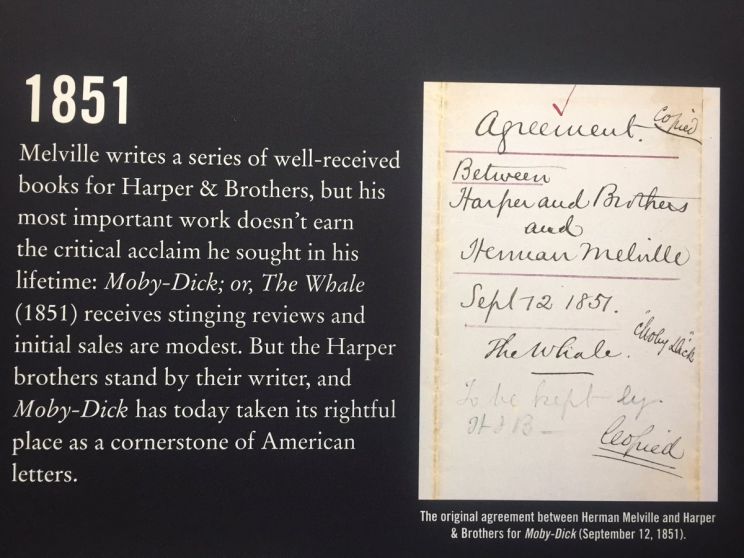 1851
Melville writes a series of well-received
books for Harper & Brothers, but his
most important work doesn't earn
the critical acclaim he sought in his
lifetime: Moby-Dick; or, The Whale
(1851) receives stinging reviews and
initial sales are modest. But the Harper
brothers stand by their writer, and
Moby-Dick has today taken its rightful
place as a cornerstone of American
letters.
Copied
Agreement.
Between
Harper and Brothers
and
Herman Melville
Sept 12 1851.
"Moby Dick"
The Whale.
To be kept by
H & B—
Copied
The original agreement between Herman Melville and Harper
& Brothers for Moby-Dick (September 12, 1851).